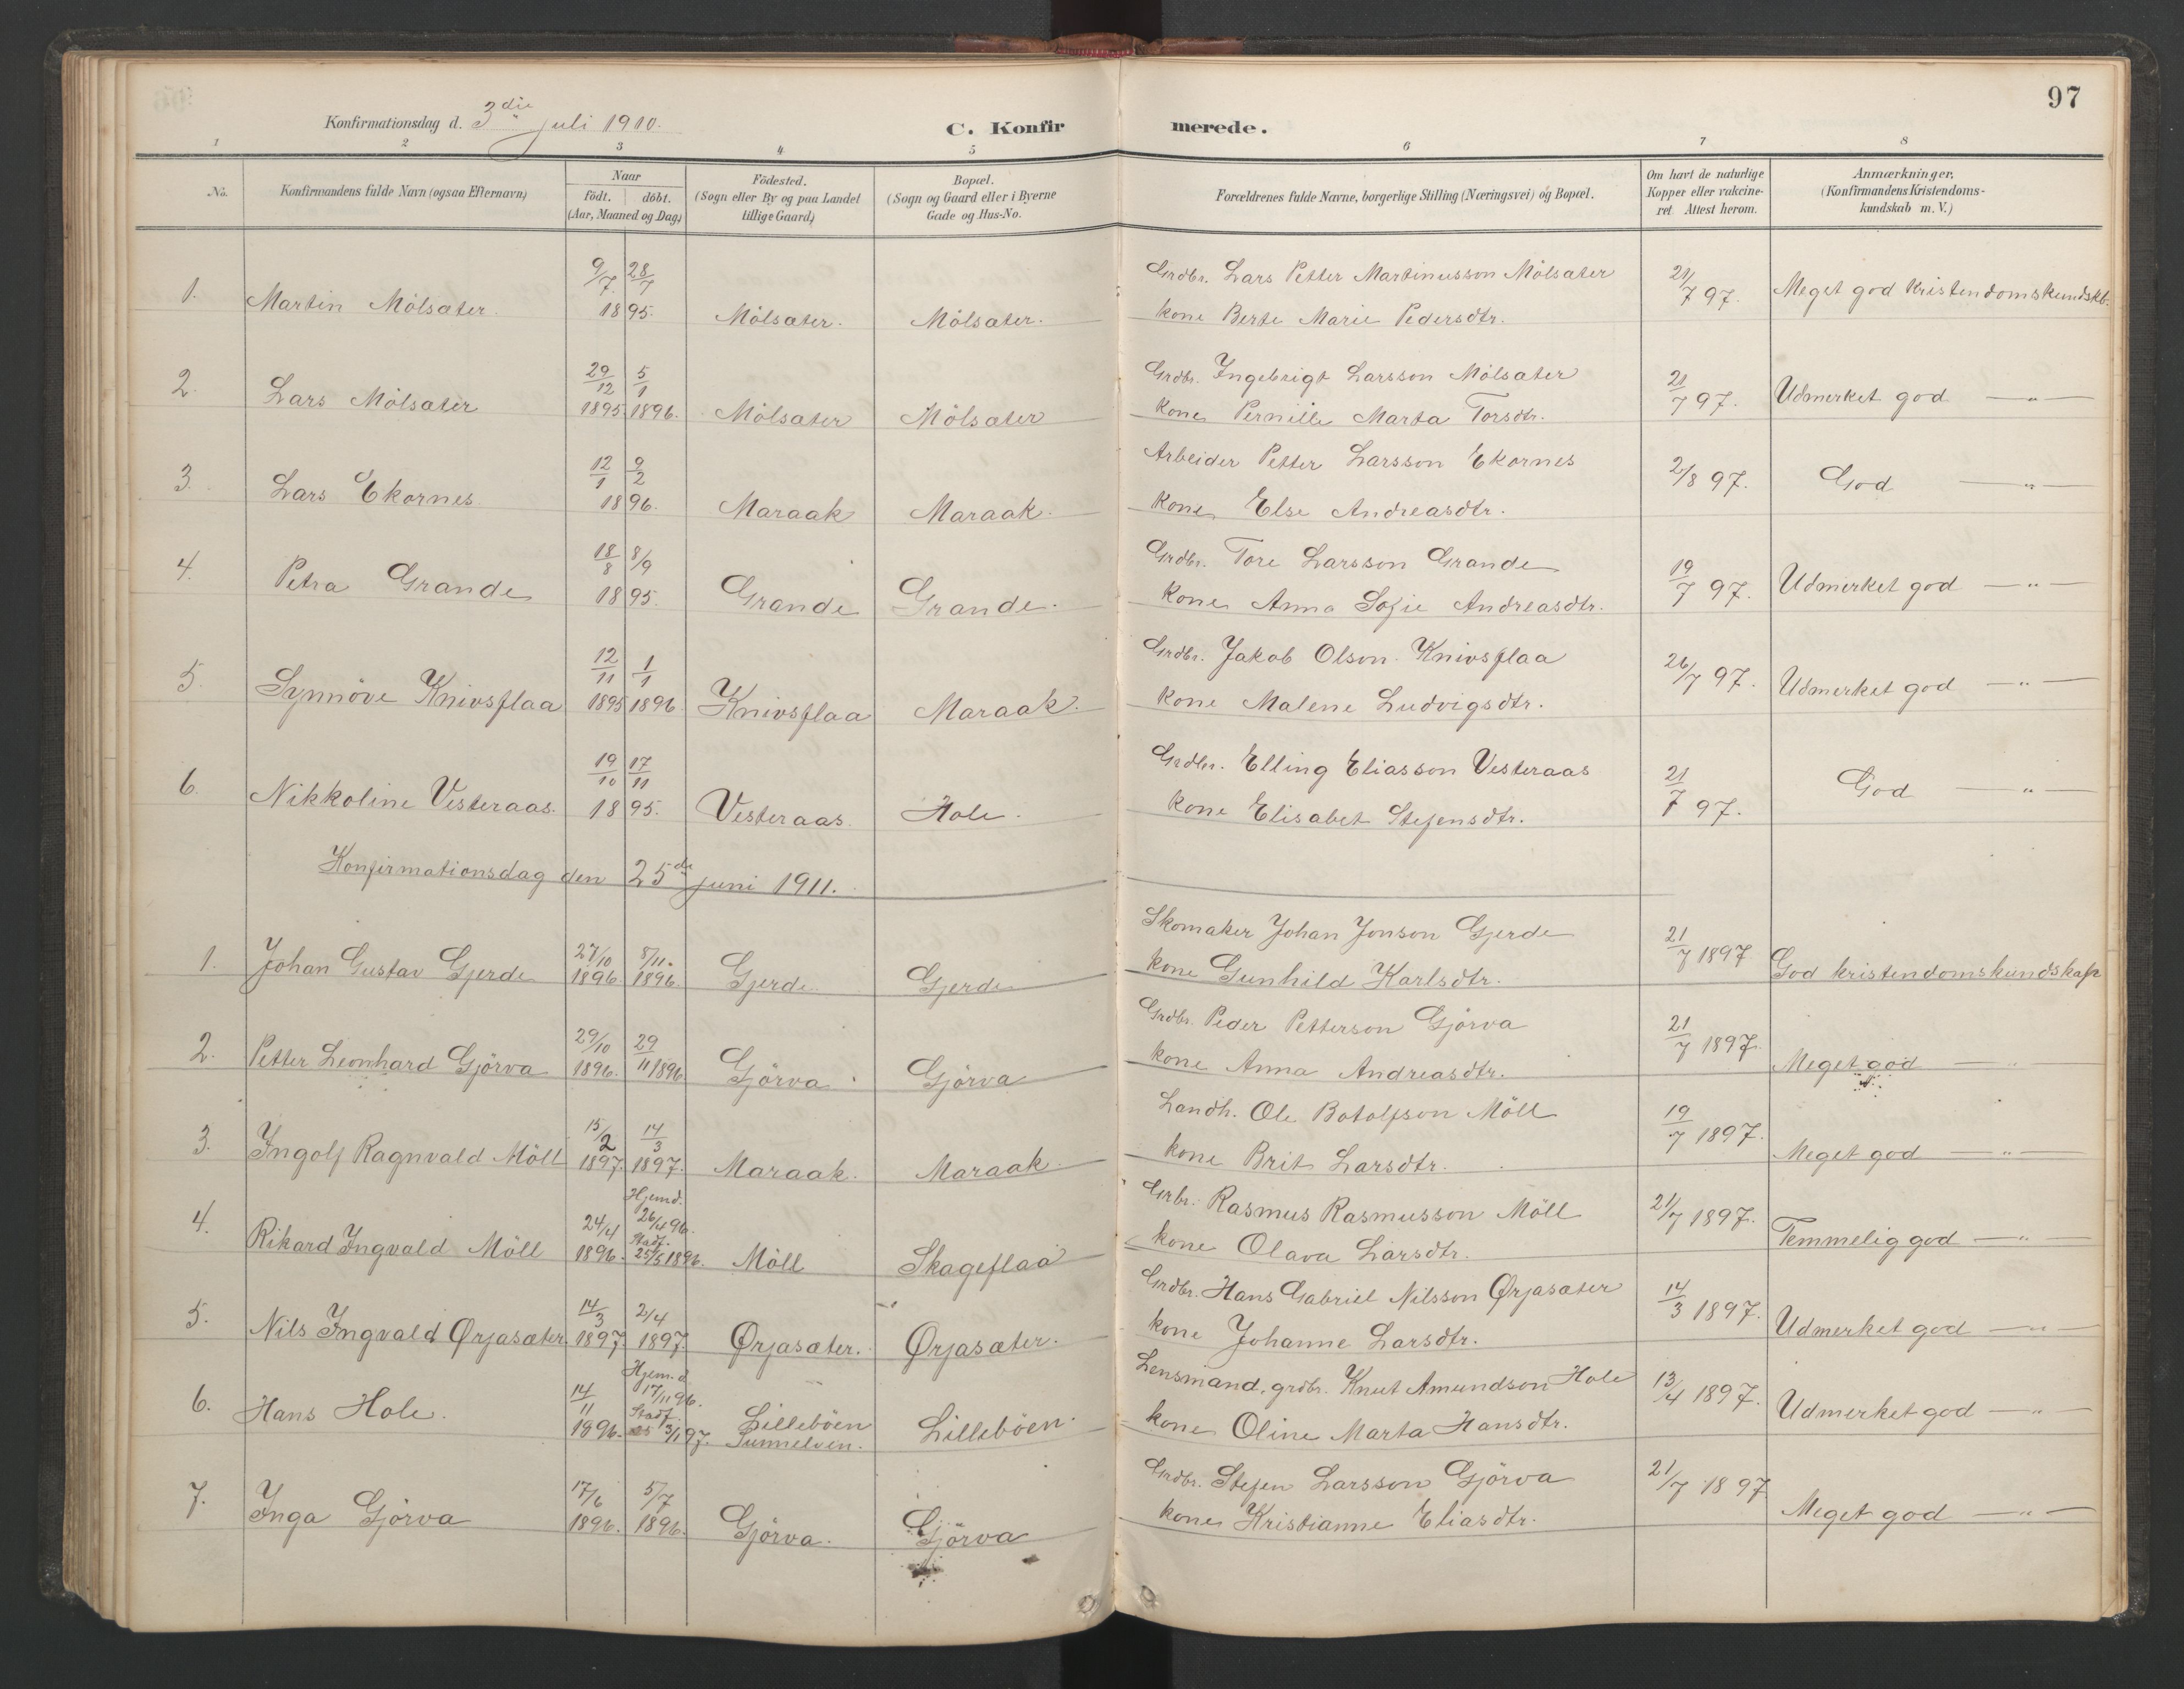 97
Konfirmationsdag d. 3die juli 1910.
C. Konfirmerede.
1 2 3 4 5 6 7 8
No. Konfirmandens fulde Navn (ogsaa Efternavn) Naar födt. döbt. (Aar, Maaned og Dag.) Födested. (Sogn eller By og paa Landet tillige Gaard) Bopæl. (Sogn og Gaard eller i Byerne Gade og Hus-No. Forældrenes fulde Navne, borgerlige Stilling (Næringsvei) og Bopæl. Om havt de naturlige Kopper eller vakcineret Attest herom. Anmærkninger. (Konfirmandens Kristendomskundskab m. V.)
1. Martin Mölsæter. 9/7 28/7 1895. Mölsæter. Mölsæter. Grdbr. Lars Petter Martinusson Mölsæter 21/7 97. Meget god kristendomskundskb.
kone Berte Marie Pedersdtr.
2. Lars Mölsæter 29/12 1895 5/1 1896. Mölsæter Mölsæter Grdbr. Ingebrigt Larsson Mölsæter 21/7 97. Udmerket god — " —
kone Pernille Marta Torsdtr.
3. Lars Ekornes 12/1 9/2 1896. Maraak Maraak. Arbeider Petter Larsson Ekornes 2/8 97. God — " —
kone Else Andreasdtr.
4. Petra Grande 18/8 8/9 1895. Grande Grande. Grdbr. Tore Larsson Grande 19/7 97. Udmerket god — " —
kone Anna Sofie Andreasdtr.
5. Synnöve Knivsflaa 12/11 1895 1/1 1896. Knivsflaa Maraak. Grdbr. Jakob Olson Knivsflaa 26/7 97. Udmerket god — " —
kone Malene Ludvigsdtr.
6. Nikkoline Vesteraas. 19/10 17/11 1895. Vesteraas. Hole. Grdbr. Elling Eliasson Vesteraas 21/7 97. God — " —
kone Elisabet Stefensdtr.
Konfirmationsdag den 25de juni 1911.
1. Johan Gustav Gjerde 27/10 1896. 8/11. 1896. Gjerde Gjerde Skomaker Johan Jonson Gjerde 21/7 1897. God kristendomskundskap
kone Gunhild Karlsdtr.
2. Petter Leonhard Gjörva 29/10 1896. 29/11 1896 Gjörva Gjörva Grdbr. Peder Petterson Gjörva 21/7 1897. Meget god — " —
kone Anna Andreasdtr.
3. Ingolf Ragnvald Möll 15/2 1897. 14/3 1897. Maraak. Maraak. Landh. Ole Botolfson Möll 19/7 1897. Meget god — " —
kone Brit Larsdtr.
4. Rikard Ingvald Möll 24/4 1896. Hjemd. 26/4 96. Stadf. 25/5 1896. Möll Skageflaa Grbr. Rasmus Rasmusson Möll 21/7 1897. Temmelig god — " —
kone Olava Larsdtr.
5. Nils Ingvald Ørjasæter 14/3 1897. 2/4 1897. Ørjasæter. Ørjasæter. Grdbr. Hans Gabriel Nilsson Ørjasæter 14/3 1897. Udmerket god — " —
kone Johanne Larsdtr.
6. Hans Hole. 14/11 1896. Hjem.d 17/11 96. Stadf. 3/1 97. Lilleböen Sunnelven. Lilleböen. Lensmand, grdbr. Knut Amundson Hole 13/4 1897. Udmerket god — " —
kone Oline Marta Hansdtr.
7. Inga Gjörva 17/6 1896. 5/7 1896. Gjörva. Gjörva Grdbr. Stefen Larsson Gjörva 21/7 1897 Meget god — " —
kone Kristianne Eliasdtr.